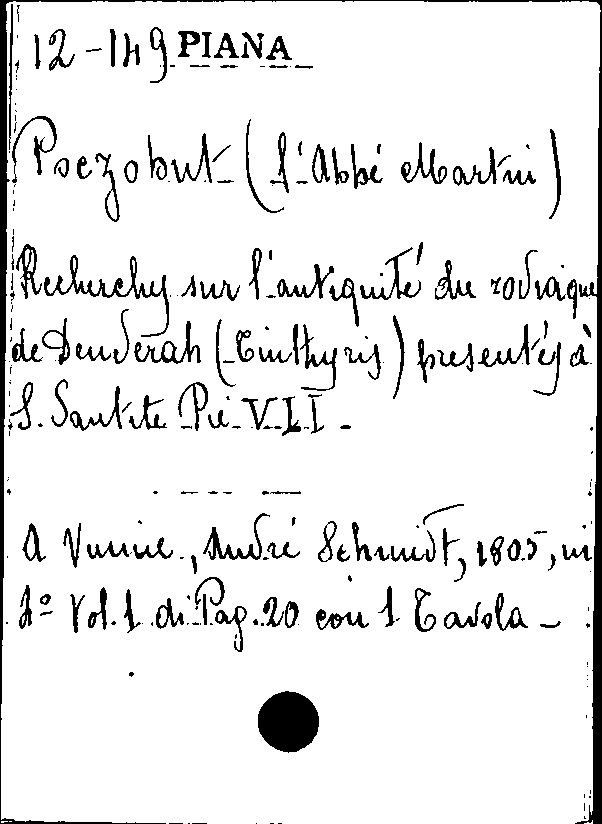 12-149 PIANA
Poczobut (l'Abbé Martin)
Recherches sur l'antiquité du zodiaque
de Denderah (Tinthyris) presentés à
S. Santite Pie VII -
A Vienne, André Schmidt, 1805, in
4º Vol. 1 di Pag. 20 con 1 Tavola -